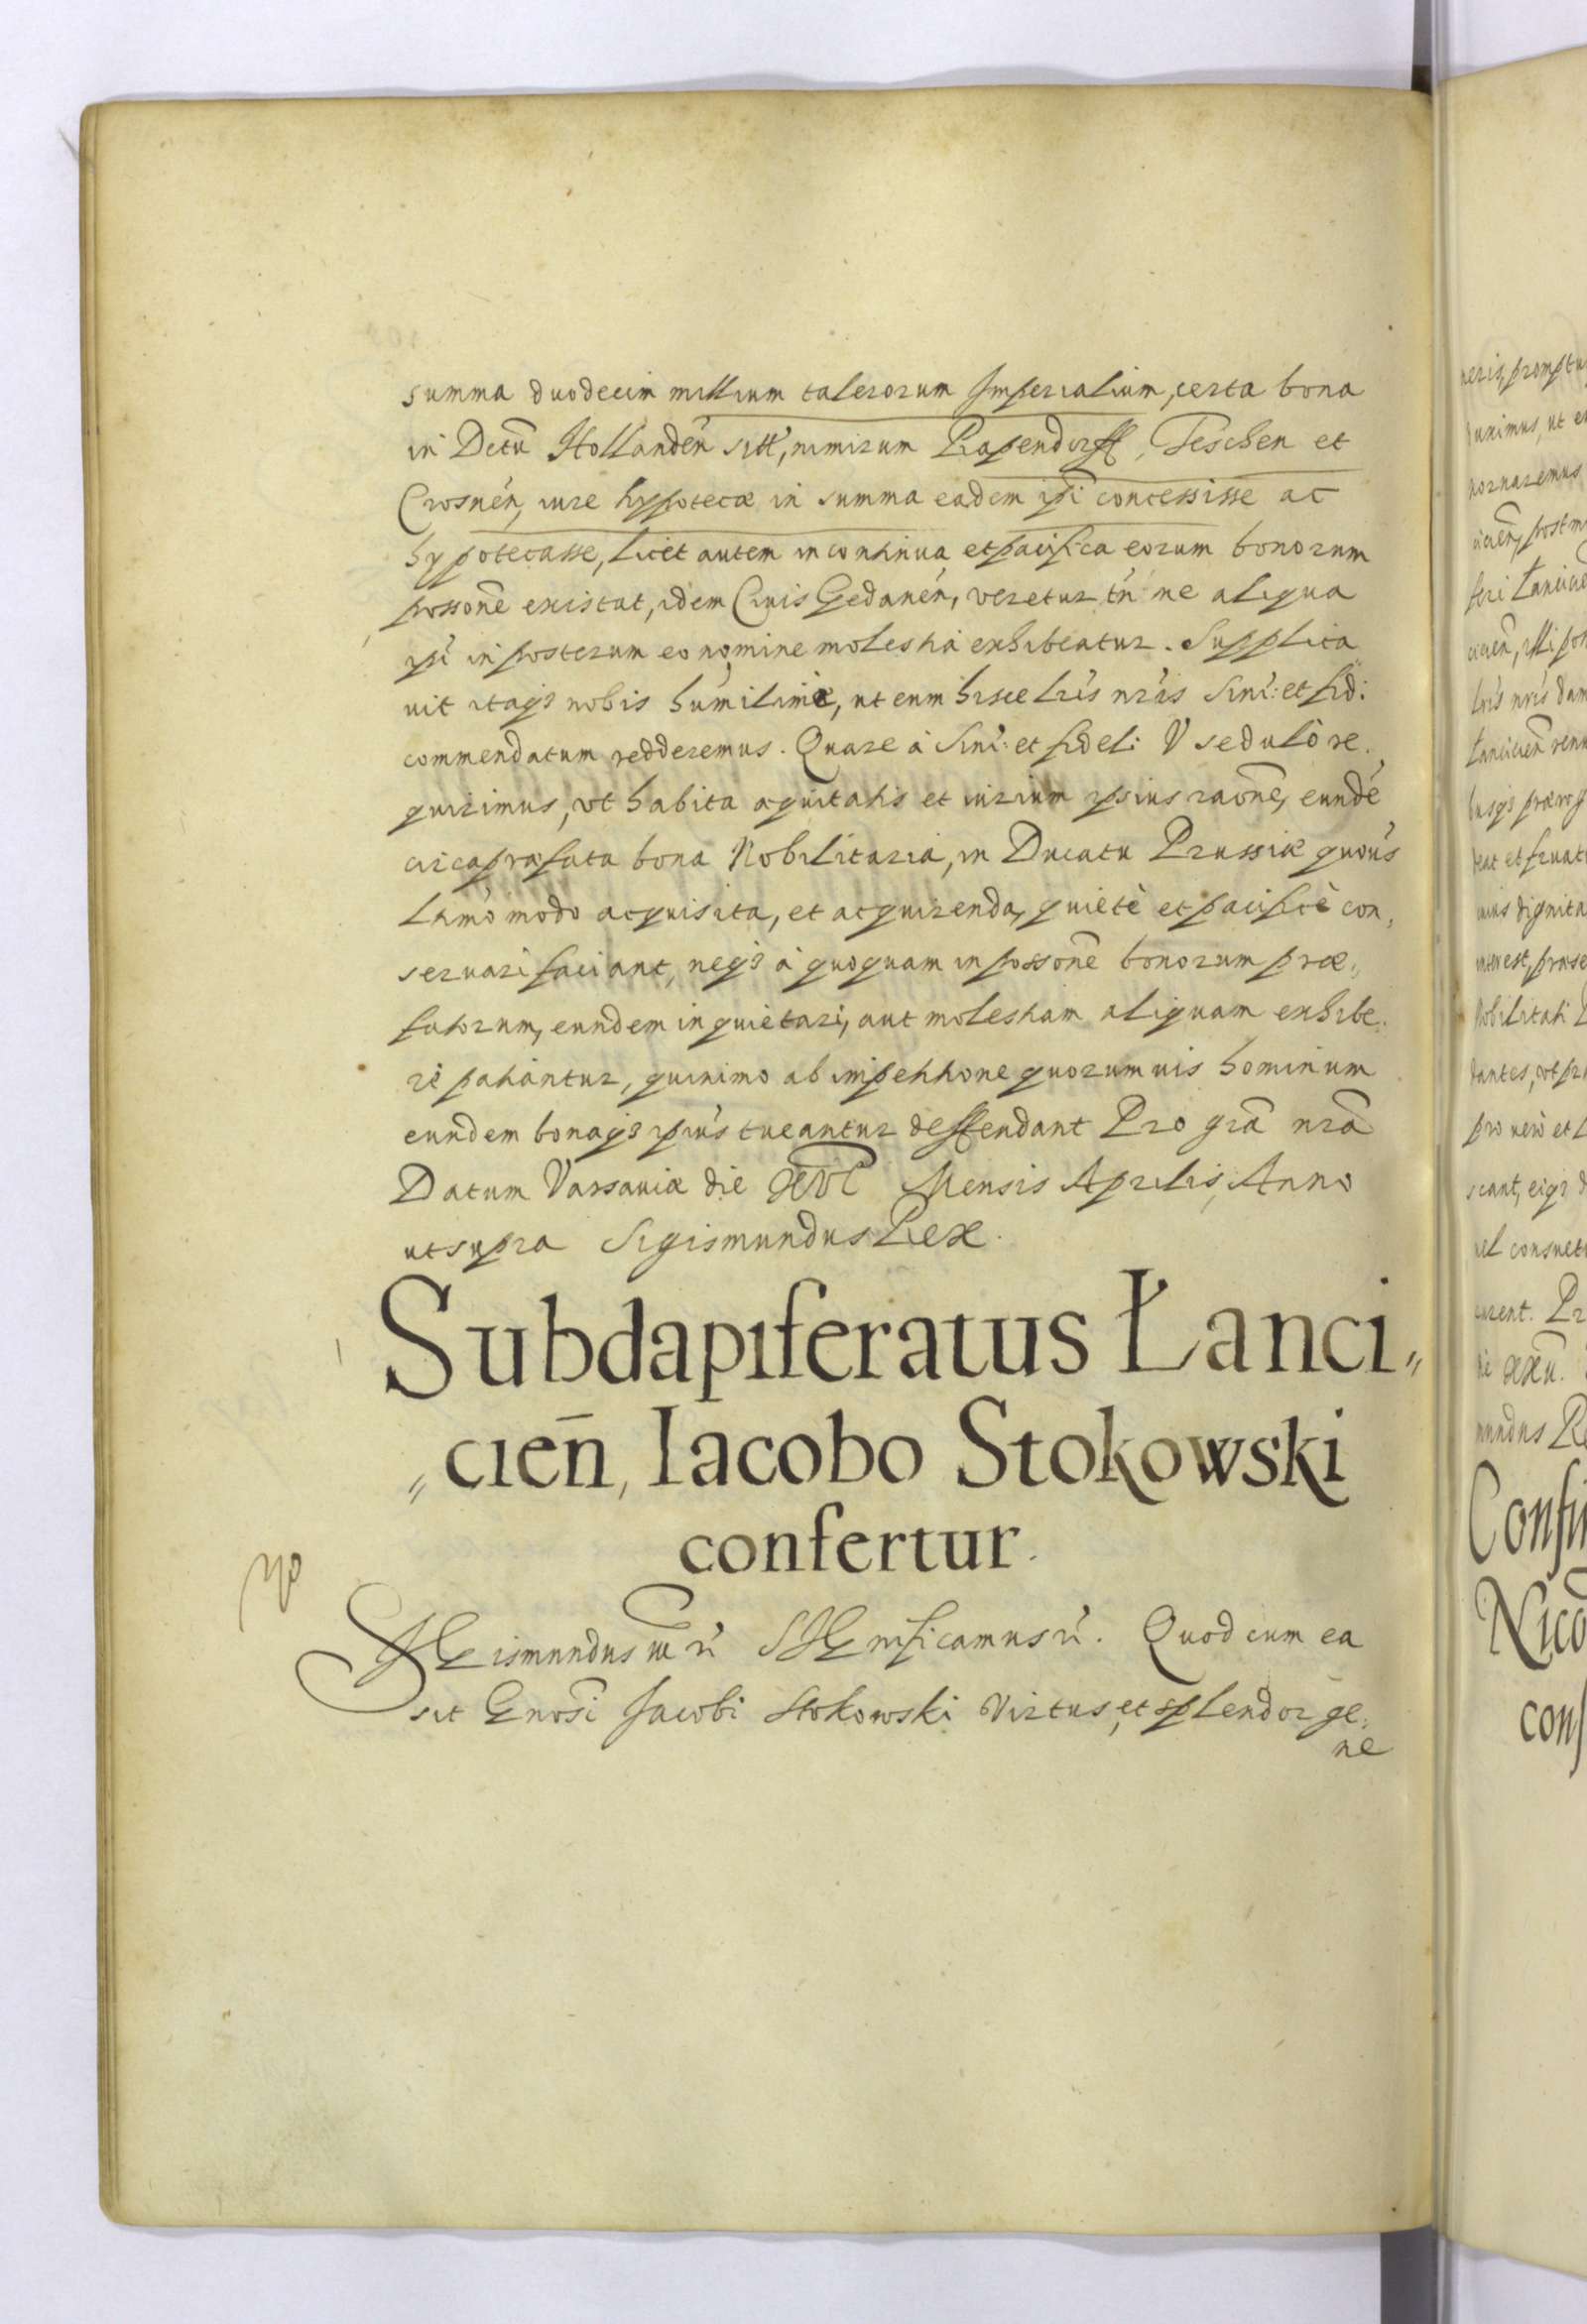 summa duodecim millium talerorum Imperialium, certa bona
in Dctũ Hollandeń sitt, nimirum Rapendorff, Teschen et
Crosneń, iure hypotecæ in summa eadem ipi concessisse ac
hypotecasse, licet autem in continua et pacifica eorum bonorum
possone existat, idem Civis Gedaneń, veretur tń ne aliqua
ipi in posterum eo nomine molestia exhibeatur. Supplica
vit itaqȝ nobis humilime, ut eum hisce lris nris Sinĩ: et fid:
commendatum redderemus. Quare à Sinĩ: et fideli: V sedulò re,
quirimus, vt habita æquitatis et iurium ipsius raone, eundẽ
circa præfata bona Nobilitaria, in Ducatu Prussiæ quouis
ltimo modo acquisita, et acquirenda, quietè et pacificè con,
seruari faciant, neqȝ à quoquam in possone bonorum præ,,
fatorum, eundem inquietari, aut molestiam aliquam exhibe,
ri patiantur, quinimo ab impetitione quorumuis hominum
eundem bonaqȝ ipius tueantur deffendant Pro grã nrã
Datum Varsauiæ die XVI Mensis Aprilis, Anno
ut supra Sigismundus Rex.
Subdapiferatus Łanci,,
,,cieñ, Iacobo Stokowski
confertur.
SIGismundus III ri SIGnificamus ri. Quod cum ea
sit Gnosi Jacobi Stokowski Virtus, et splendor ge,
ne
neris, promptu
duximus, ut e
hornaremus
cicień, postm
feri Lancicie
cicień, illi pos
lris nris dam
Lancicień renu
busqȝ præro
beat et fruat
uius dignita
interest, præse
Nobilitati
dantes, vt pr
pro uero et
scant, eiqȝ d
uel consuet
curent. Pr
die XXII.
mundus Re
Confir
Nico
conf